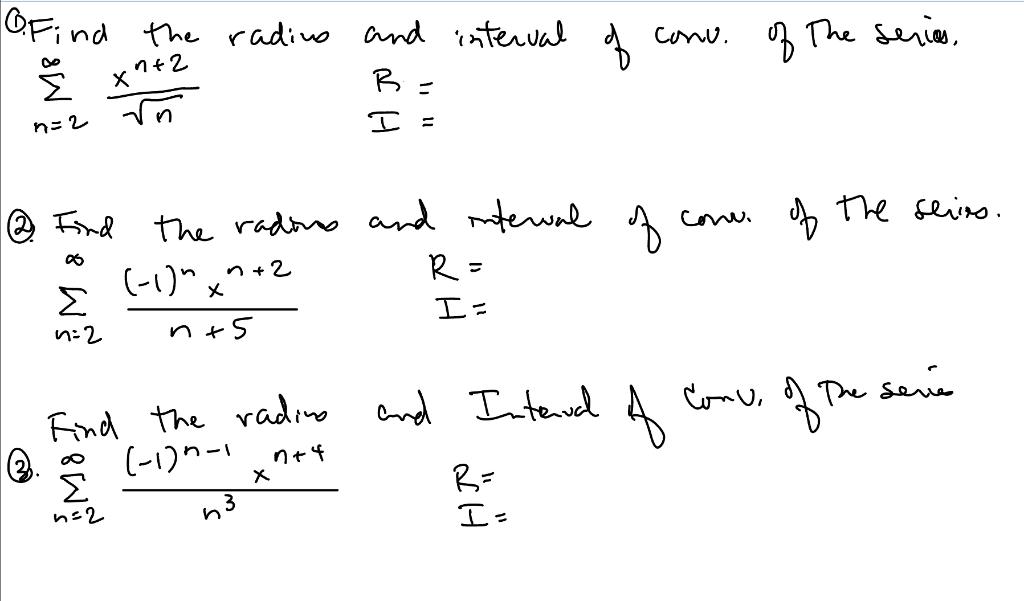 ①. Find the radius and interval of conv. of the series.
∞ Σ n=2 x^(n+2) / √n R =
I =
②. Find the radius and interval of conv. of the series.
∞ Σ n=2 (-1)^n x^(n+2) / (n+5) R =
I =
Find the radius and Interval of Conv. of the series
③. ∞ Σ n=2 (-1)^(n-1) x^(n+4) / n^3 R=
I =